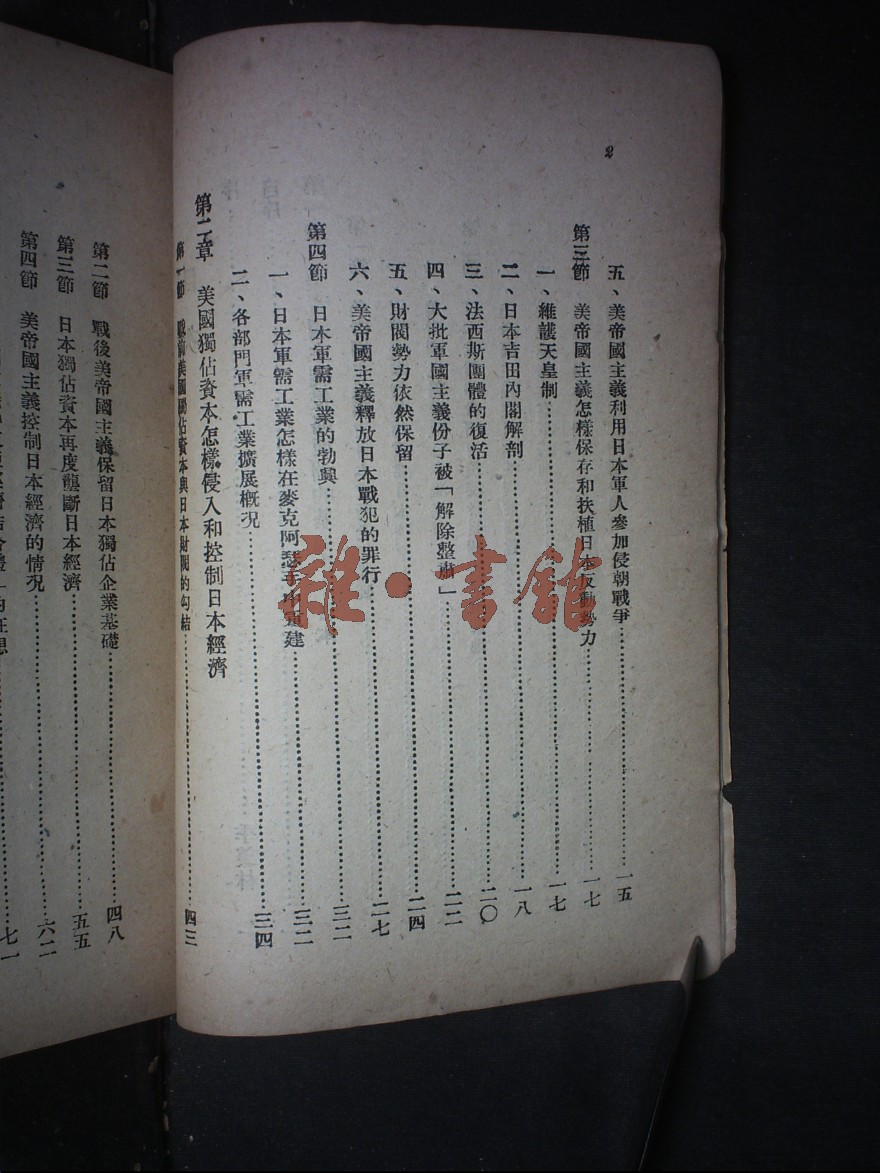 2
五、美帝國主義利用日本軍人參加侵朝戰爭……一五
第三節 美帝國主義怎樣保存和扶植日本反動勢力……一七
一、維護天皇制……一七
二、日本吉田內閣解剖……一八
三、法西斯團體的復活……二〇
四、大批軍國主義份子被「解除整肅」……二二
五、財閥勢力依然保留……二四
六、美帝國主義釋放日本戰犯的罪行……二七
第四節 日本軍需工業的勃興……三二
一、日本軍需工業怎樣在麥克阿瑟手中重建……三二
二、各部門軍需工業擴展概況……三四
第二章 美國獨佔資本怎樣侵入和控制日本經濟
第一節 戰前美國獨佔資本與日本財閥的勾結……四三
第二節 戰後美帝國主義保留日本獨佔企業基礎……四八
第三節 日本獨佔資本再度壟斷日本經濟……五五
第四節 美帝國主義控制日本經濟的情況……六二
的狂想……七一
雜·書館